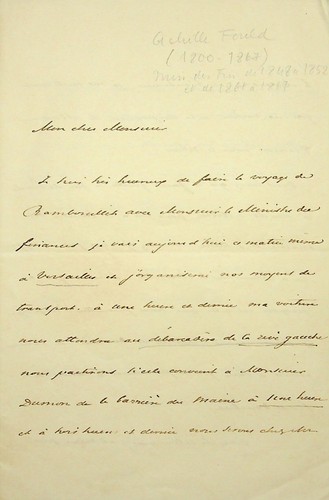 Achille Fould
(1800-1867)
Mon cher Monsieur
Je suis très heureux de faire le voyage de
Rambouillet avec Monsieur le Ministre des
finances je vais aujourd'hui ce matin même
à Versailles et j'organiserai nos moyens de
transport. à une heure et demie ma voiture
nous attendra au débarcadère de la rive gauche
nous partirons si cela convient à Monsieur
Dumon de la barrière du Maine à une heure
et à trois heures et demie nous serons chez